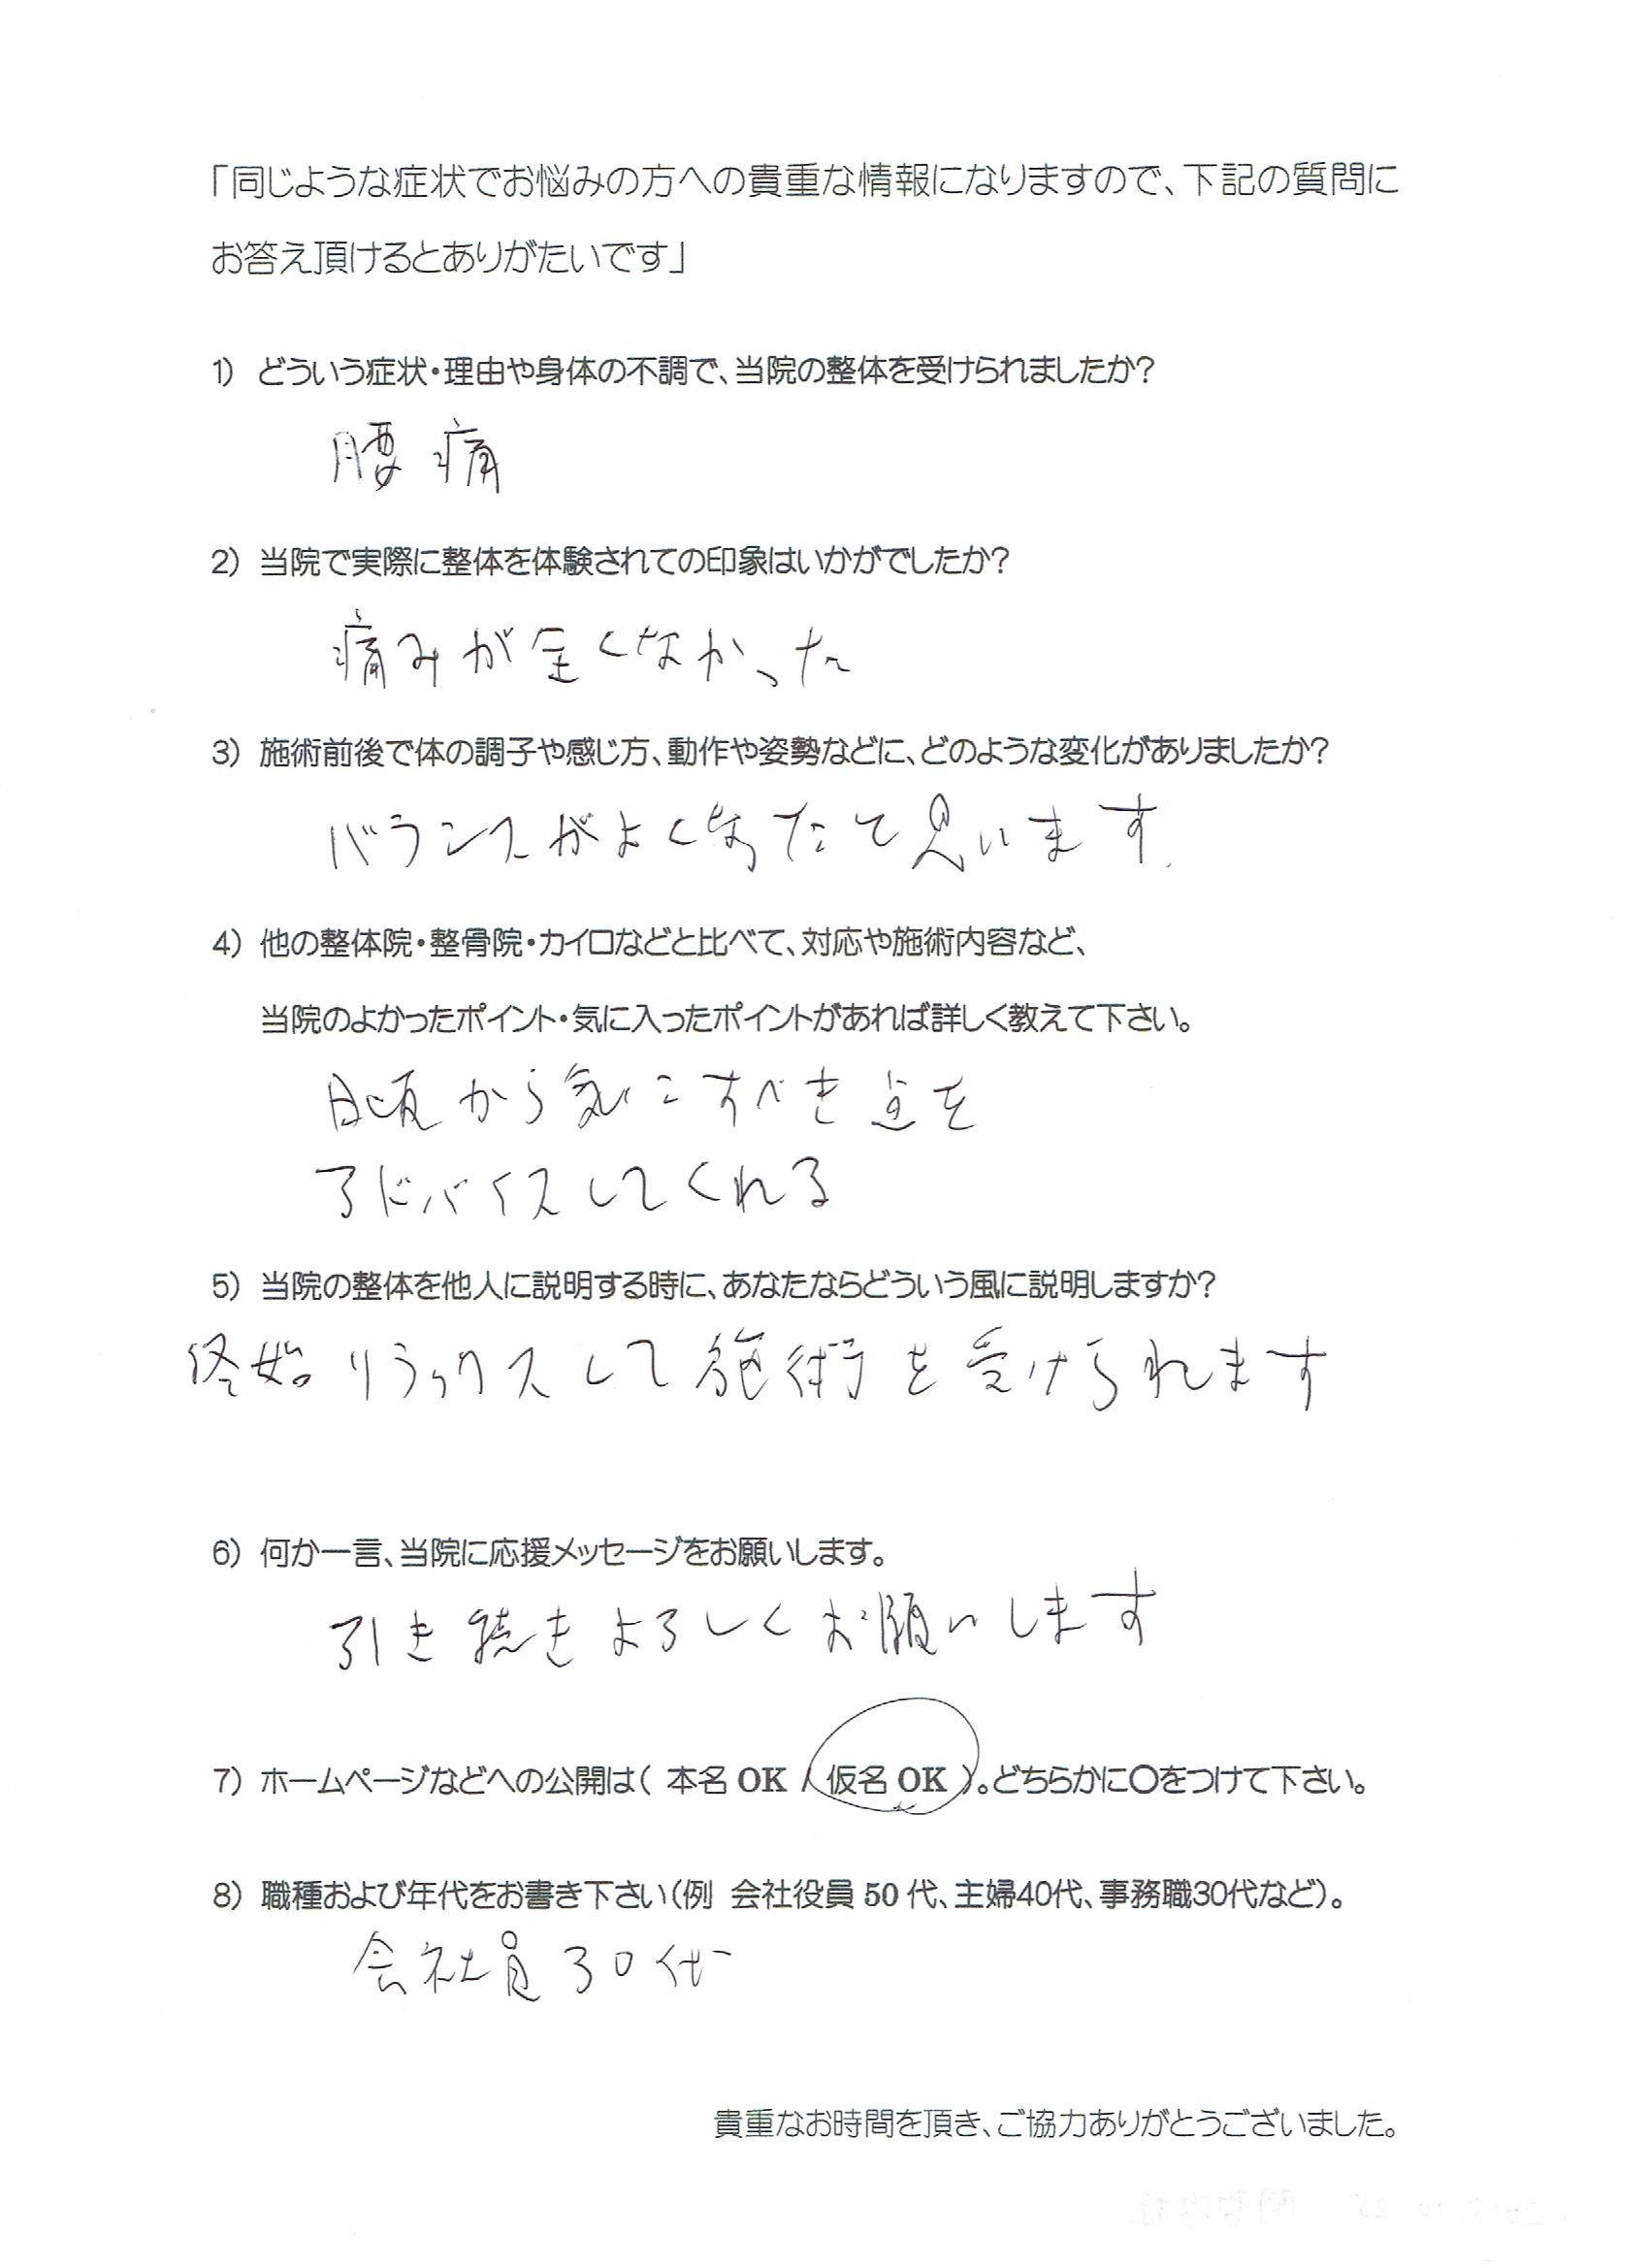 「同じような症状でお悩みの方への貴重な情報になりますので、下記の質問に
お答え頂けるとありがたいです」
1) どういう症状・理由や身体の不調で、当院の整体を受けられましたか?
腰痛
2) 当院で実際に整体を体験されての印象はいかがでしたか?
痛みが全くなかった
3) 施術前後で体の調子や感じ方、動作や姿勢などに、どのような変化がありましたか?
バランスがよくなったと思います.
4) 他の整体院・整骨院・カイロなどと比べて、対応や施術内容など、
当院のよかったポイント・気に入ったポイントがあれば詳しく教えて下さい。
日頃から気にすべき点を
アドバイスしてくれる
5) 当院の整体を他人に説明する時に、あなたならどういう風に説明しますか?
終始リラックスして施術を受けられます
6) 何か一言、当院に応援メッセージをお願いします。
引き続きよろしくお願いします
7) ホームページなどへの公開は( 本名 OK / 仮名 OK )。どちらかに〇をつけて下さい。
8) 職種および年代をお書き下さい(例 会社役員 50 代、主婦40代、事務職30代など)。
会社員30代
貴重なお時間を頂き、ご協力ありがとうございました。